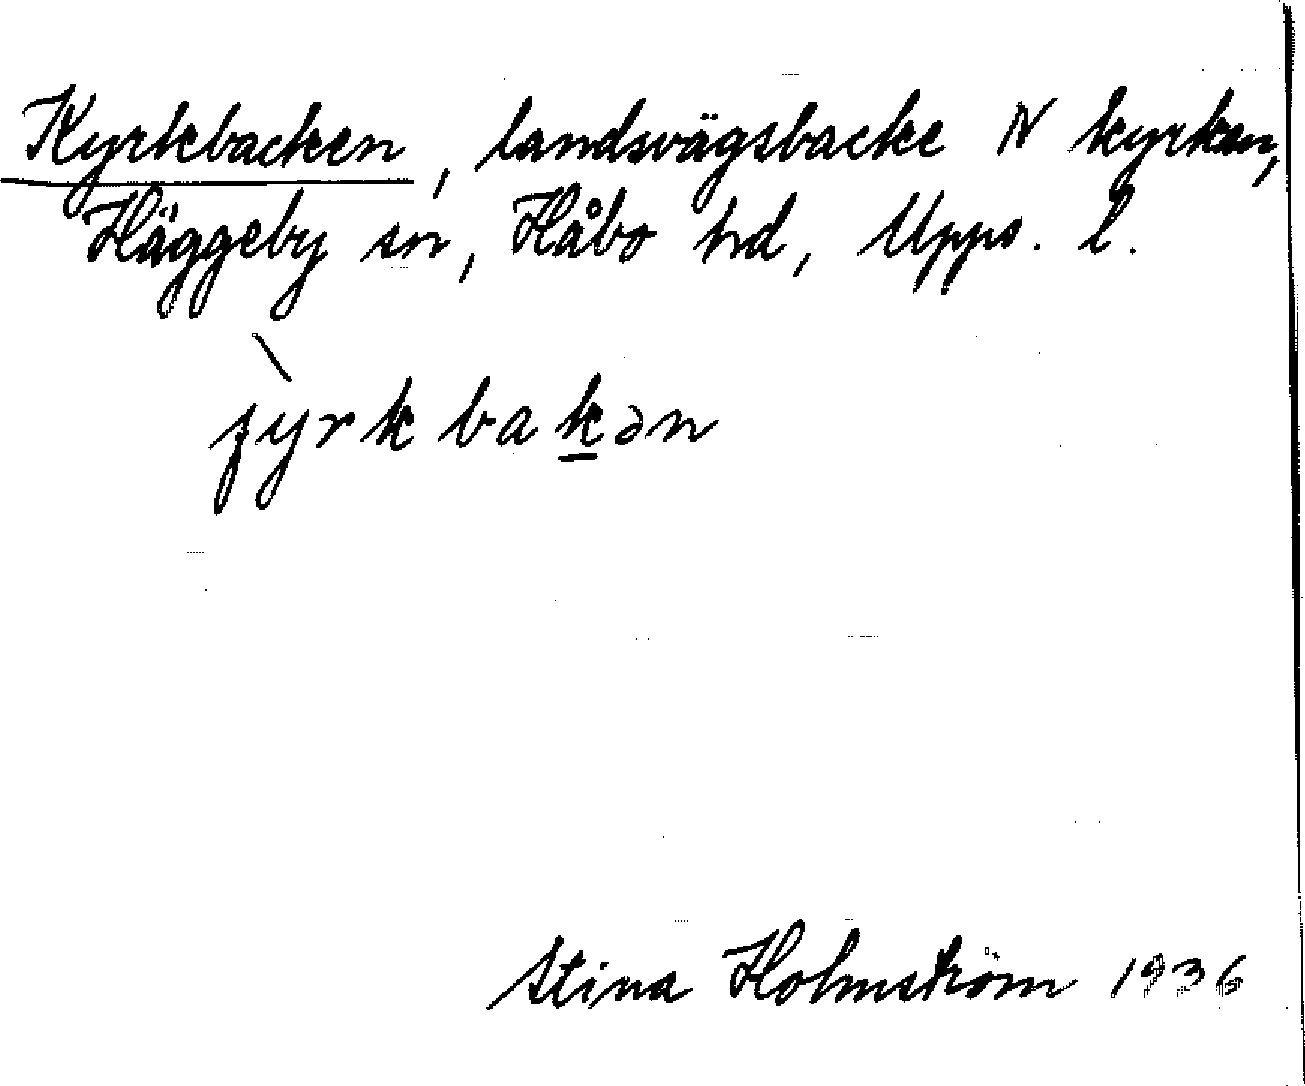 Kyrkbacken, landsvägsbacke N kyrkan,
Häggeby sn, Håbo hd, Upps. l.
ʃyrkbakən
Stina Holmström 1936